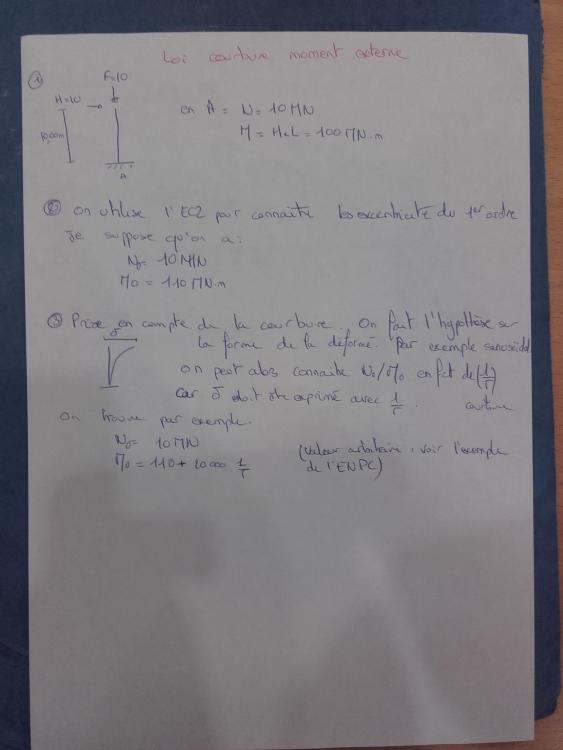 Loi courbure moment externe
①
F=10
H=10
10,00m
A
en A = N = 10 MN
M = H×L = 100 MN.m
② On utilise l'EC2 pour connaître les excentricité du 1er ordre
Je suppose qu'on a :
No = 10 MN
Mo = 110 MN.m
③ Prise en compte de la courbure. On fait l'hypothèse sur
la forme de la déformé. Par exemple sinusoïdal
δ
on peut alors connaitre No/Mo en fct de (1/r)
car δ doit être exprimé avec 1/r. courbure
On trouve par exemple.
No = 10 MN
Mo = 110 + 20000 1/r
(valeur arbitraire, voir l'exemple
de l'ENPC)